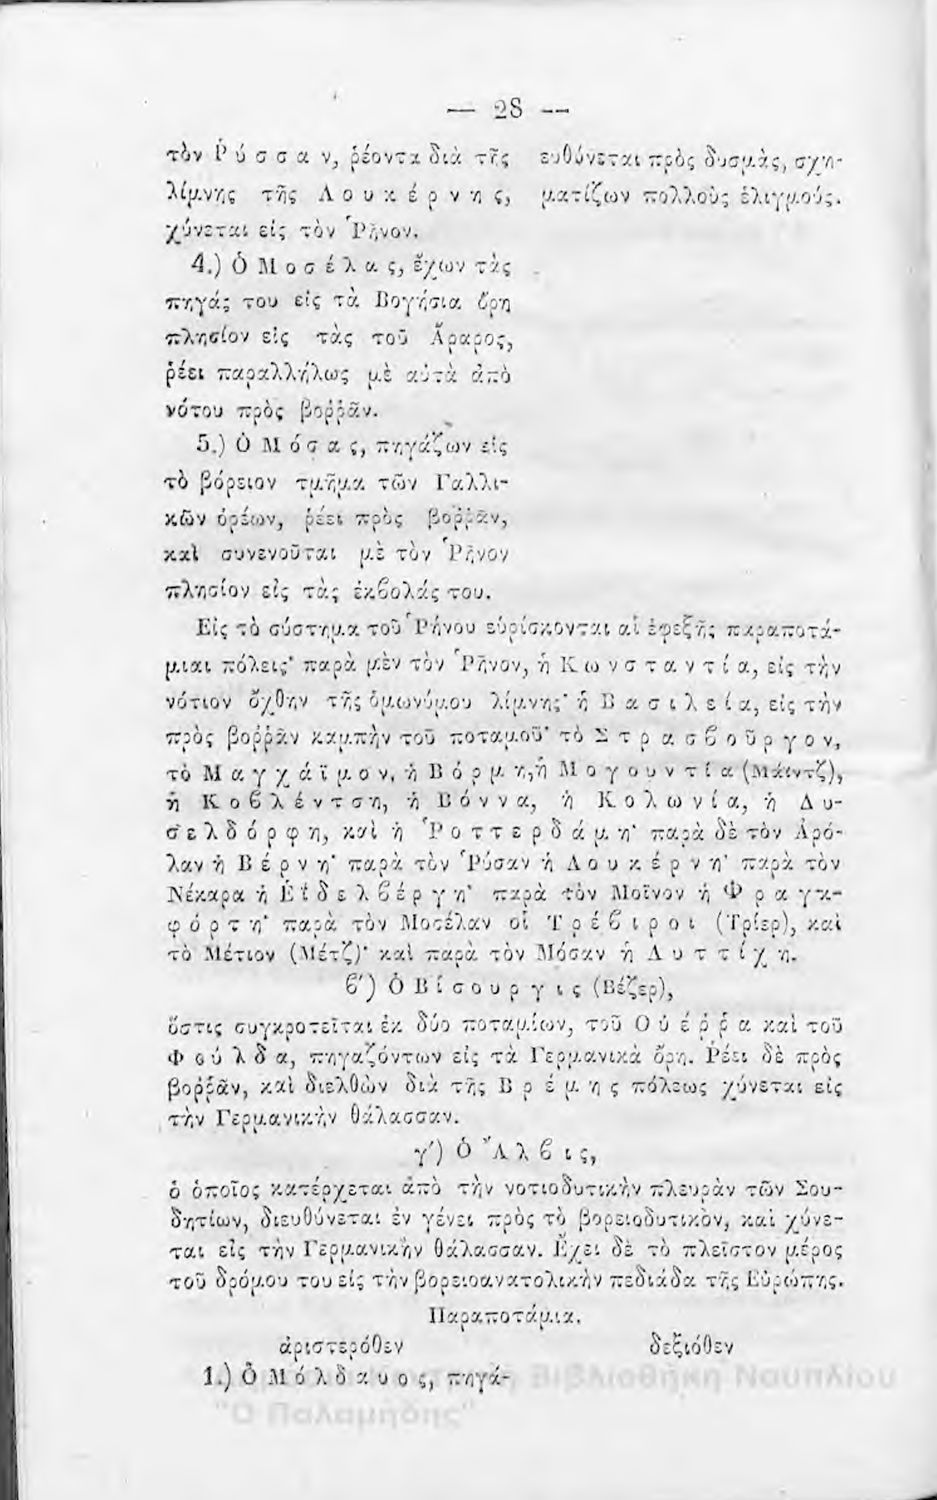 — 28 —
τὸν Ῥύσσαν, ῥέοντα διὰ τῆς
λίμνης τῆς Λουκέρνης,
χύνεται εἰς τὸν Ῥῆνον.
4.) Ὁ Μοσέλας, ἔχων τὰς
πηγάς του εἰς τὰ Βογήσια ὄρη
πλησίον εἰς τὰς τοῦ Ἄραρος,
ῥέει παραλλήλως μὲ αὐτὰ ἀπὸ
νότου πρὸς βοῤῥᾶν.
5.) Ὁ Μόσας, πηγάζων εἰς
τὸ βόρειον τμῆμα τῶν Γαλλι-
κῶν ὀρέων, ῥέει πρὸς βοῤῥᾶν,
καὶ συνενοῦται μὲ τὸν Ῥῆνον
πλησίον εἰς τὰς ἐκβολάς του.
εὐθύνεται πρὸς δυσμὰς, σχη-
ματίζων πολλοὺς ἑλιγμούς.
Εἰς τὸ σύστημα τοῦ Ῥήνου εὑρίσκονται αἱ ἐφεξῆς παραποτά-
μιαι πόλεις· παρὰ μὲν τὸν Ῥῆνον, ἡ Κωνσταντία, εἰς τὴν
νότιον ὄχθην τῆς ὁμωνύμου λίμνης· ἡ Βασιλεία, εἰς τὴν
πρὸς βοῤῥᾶν καμπὴν τοῦ ποταμοῦ· τὸ Στρασβοῦργον,
τὸ Μαγχάϊμον, ἡ Βόρμη, ἡ Μογουντία (Μάϊντζ),
ἡ Κοβλέντση, ἡ Βόννα, ἡ Κολωνία, ἡ Δυ-
σελδόρφη, καὶ ἡ Ῥοττερδάμη· παρὰ δὲ τὸν Ἀρό-
λαν ἡ Βέρνη· παρὰ τὸν Ῥύσαν ἡ Λουκέρνη· παρὰ τὸν
Νέκαρα ἡ Ἐϊδελβέργη· παρὰ τὸν Μοῖνον ἡ Φραγκ-
φόρτη· παρὰ τὸν Μοσέλαν οἱ Τρέβιροι (Τρίερ), καὶ
τὸ Μέτιον (Μέτζ)· καὶ παρὰ τὸν Μόσαν ἡ Λυττίχη.
β') Ὁ Βίσουργις (Βέζερ),
ὅστις συγκροτεῖται ἐκ δύο ποταμίων, τοῦ Οὐέῤῥα καὶ τοῦ
Φούλδα, πηγαζόντων εἰς τὰ Γερμανικὰ ὄρη. Ῥέει δὲ πρὸς
βοῤῥᾶν, καὶ διελθὼν διὰ τῆς Βρέμης πόλεως χύνεται εἰς
τὴν Γερμανικὴν θάλασσαν.
γ') Ὁ Ἄλβις,
ὁ ὁποῖος κατέρχεται ἀπὸ τὴν νοτιοδυτικὴν πλευρὰν τῶν Σου-
δητίων, διευθύνεται ἐν γένει πρὸς τὸ βορειοδυτικὸν, καὶ χύνε-
ται εἰς τὴν Γερμανικὴν θάλασσαν. Ἔχει δὲ τὸ πλεῖστον μέρος
τοῦ δρόμου του εἰς τὴν βορειοανατολικὴν πεδιάδα τῆς Εὐρώπης.
Παραποτάμια.
ἀριστερόθεν δεξιόθεν
1.) Ὁ Μόλδαυος, πηγά-
Βιβλιοθήκη Ναυπλίου
"Ο Παλαμήδης"